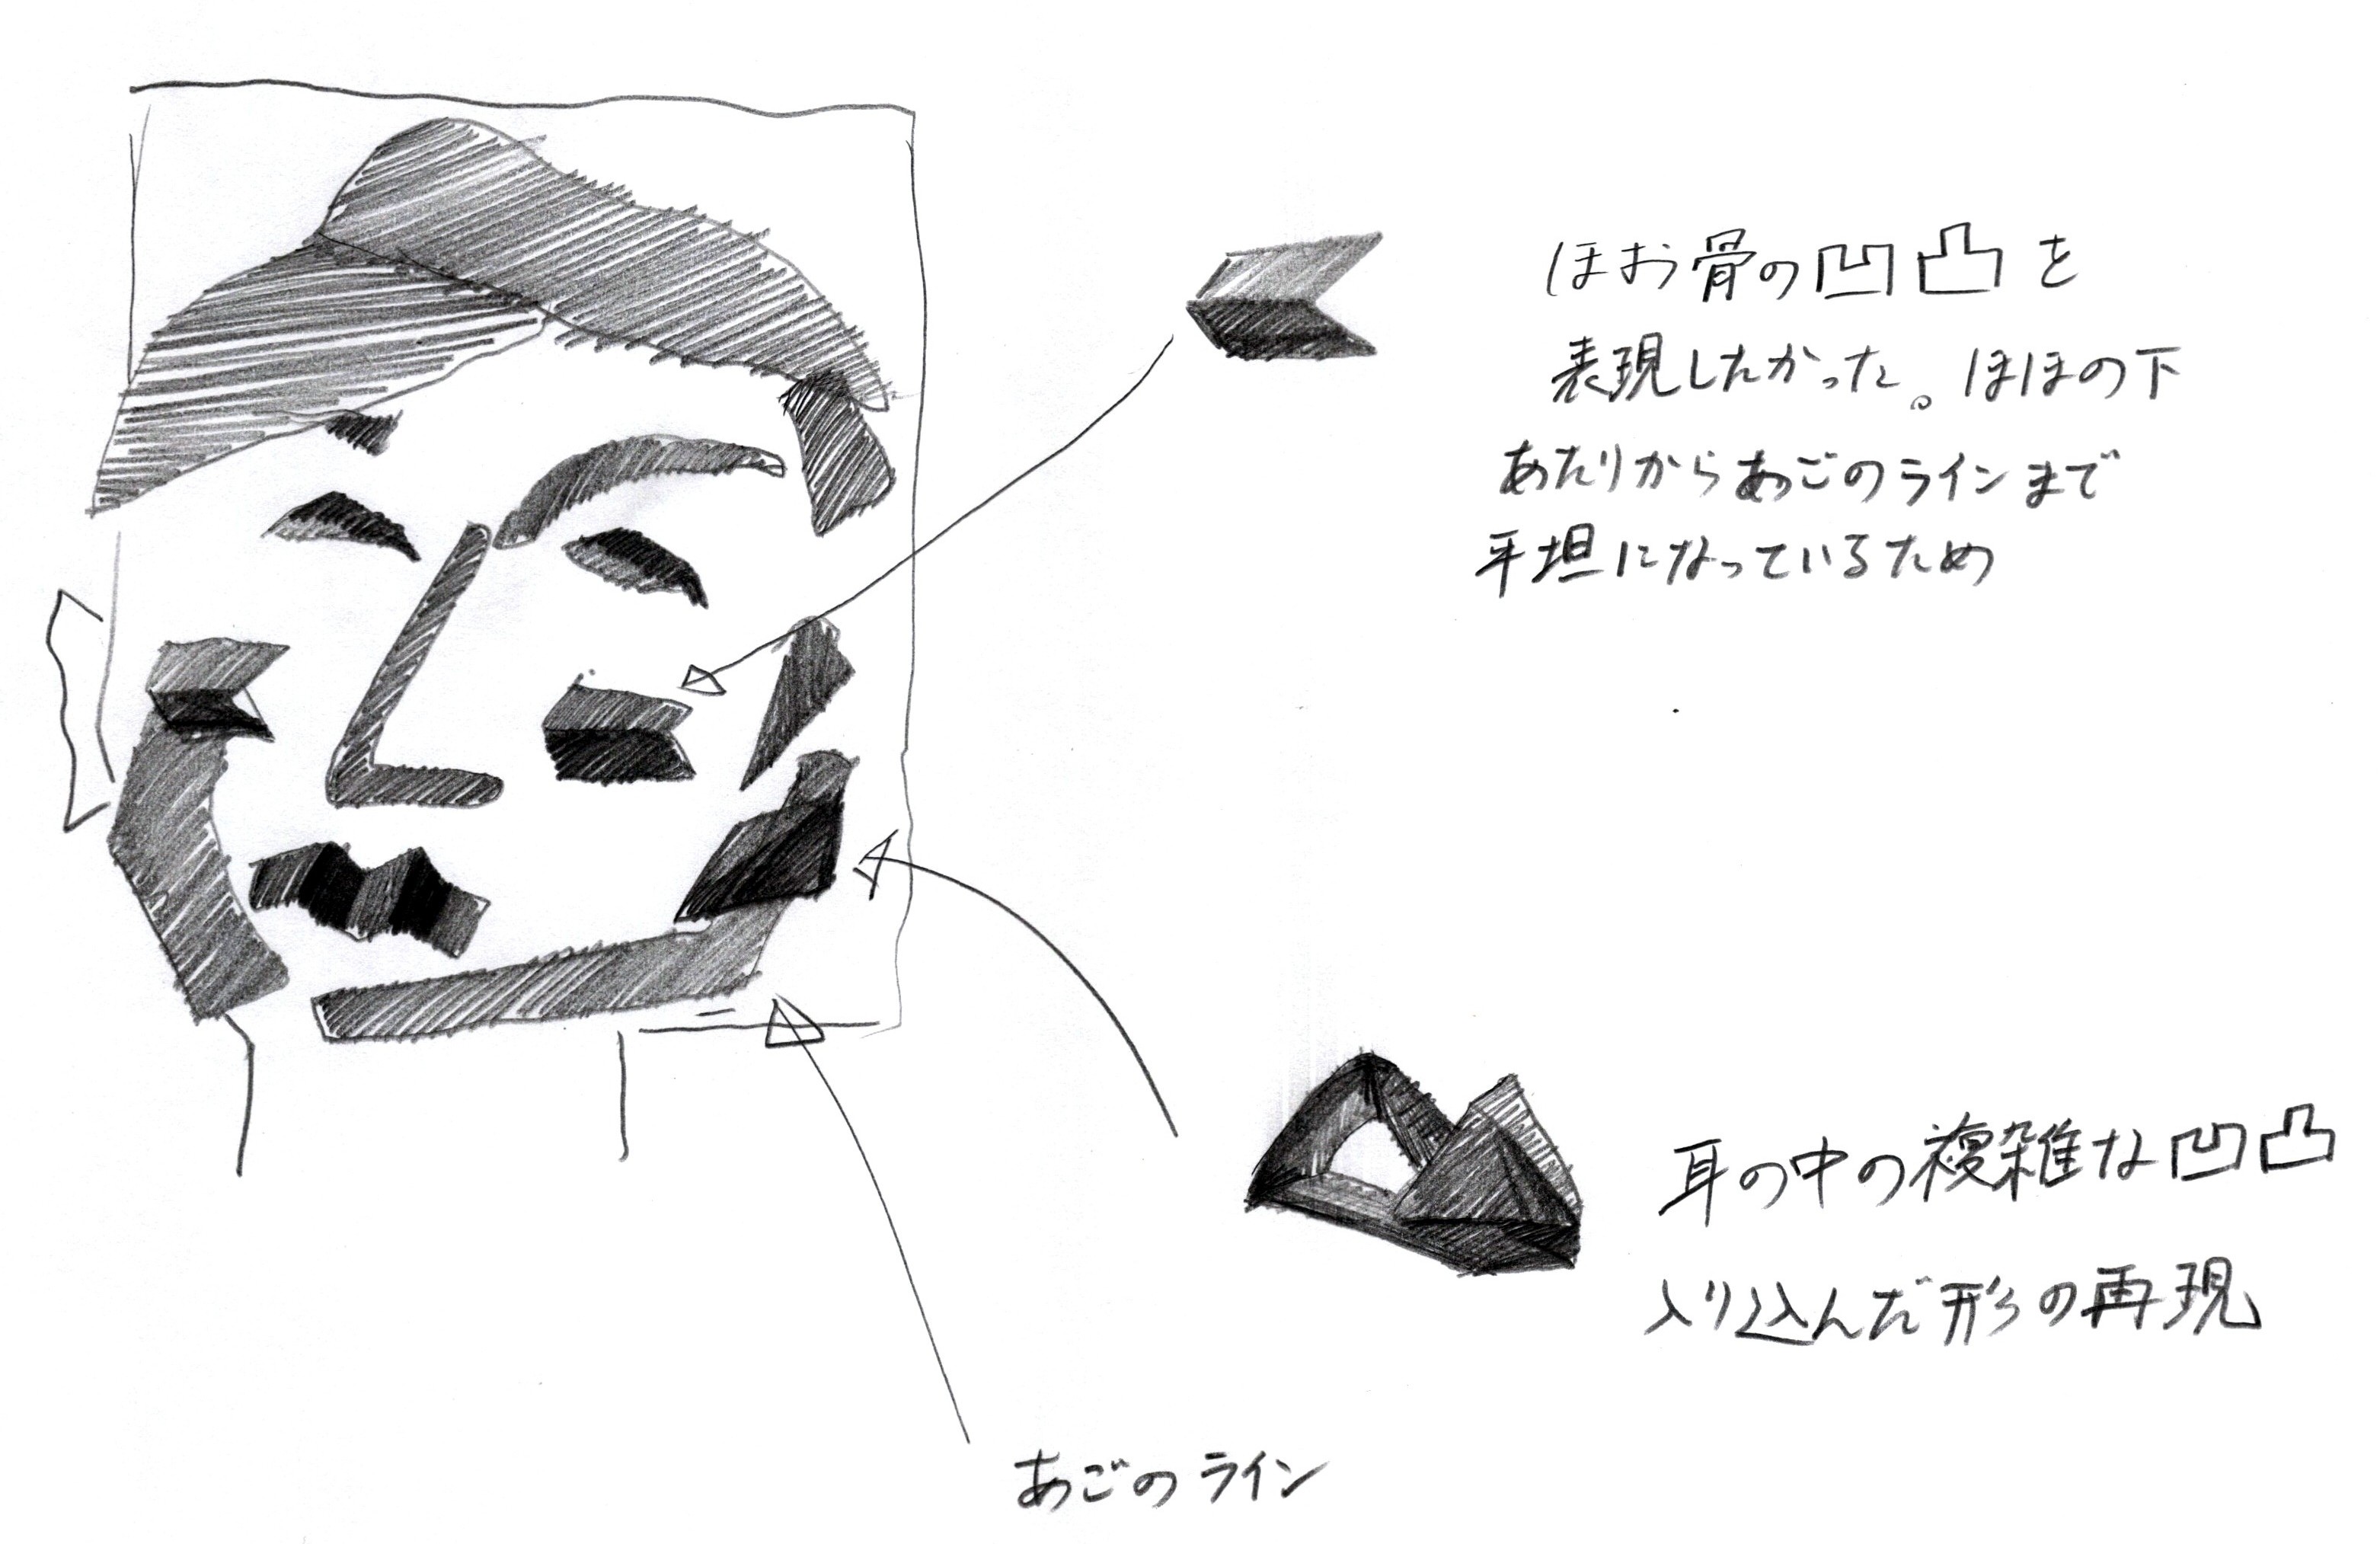 ほお骨の凹凸を
表現したかった。ほほの下
あたりからあごのラインまで
平坦になっているため
耳の中の複雑な凹凸
入り込んだ形の再現
あごのライン